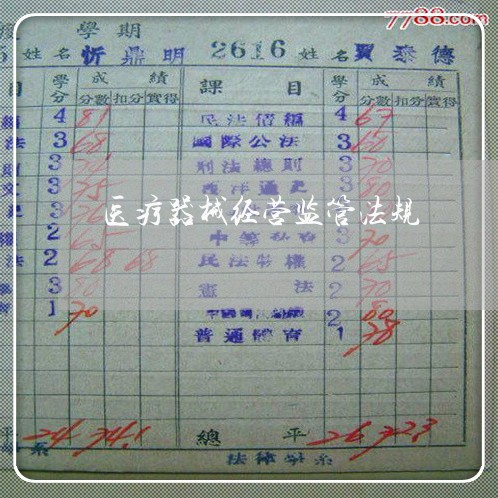 7788.com
學期
姓名 忻鼎明 2616 姓名 賈泰德
目 學分 成績 課目 學分 成績
分數 扣分 實得 分數 扣分 實得
4 81 民法債編 4 67
法 3 68 國際公法 3 60
3 刑法總則 3 70
3 75 西洋通史 3 80
3
2 65 3 70
法 2 68 68 民法物權 2 65
3 80 憲法 2 70
1 70 2 80
普通體育 1 78
平 24 74.1 總平 26 72.3
系 法律學系
医疗器械经营监管法规